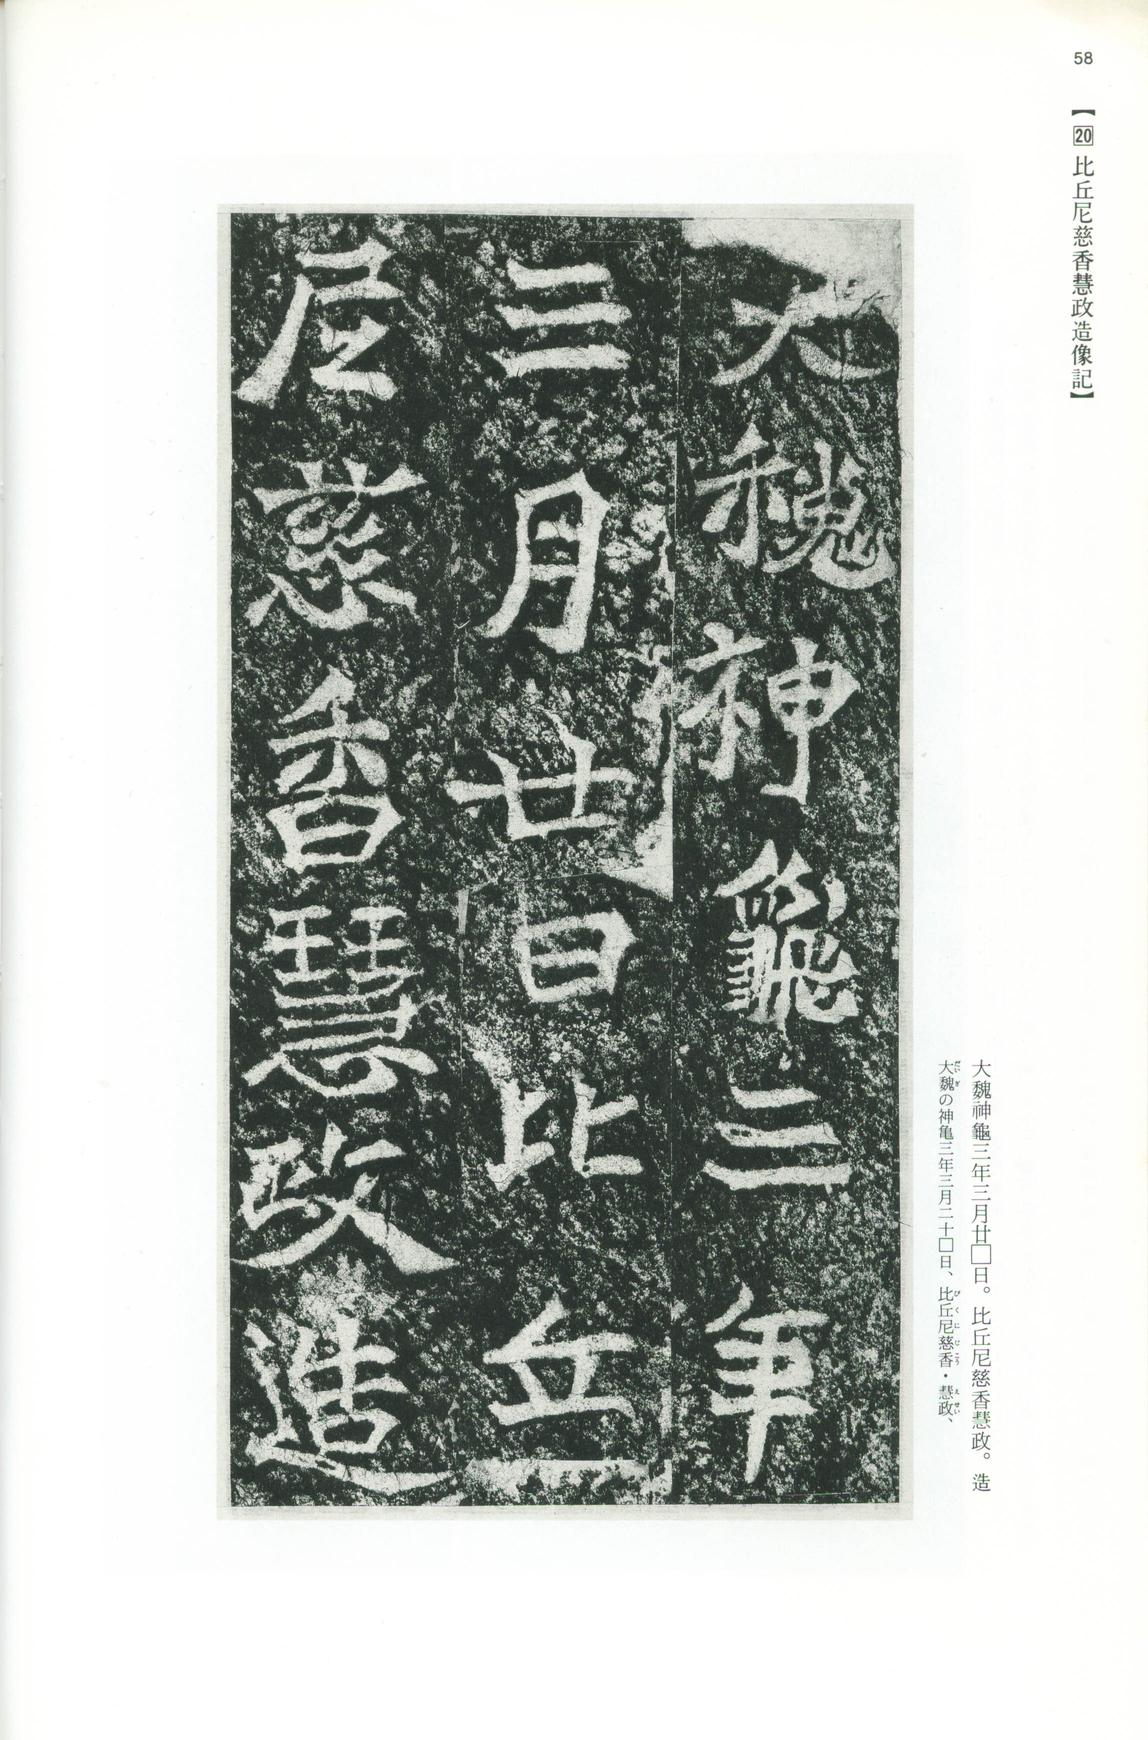 58
【20 比丘尼慈香慧政造像記】
大魏神龜三年三月廿□日。比丘尼慈香慧政。造
大魏の神亀三年三月二十□日、比丘尼慈香・慧政、
大魏神龜三年
三月廿日比丘
尼慈香慧政造